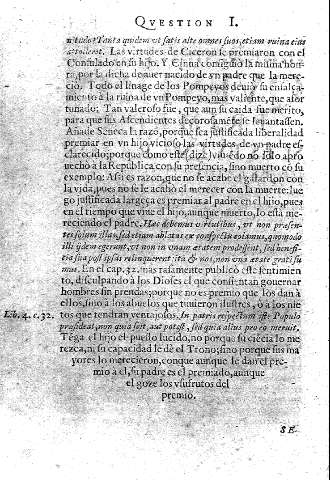 QVESTION I.
n tudo? Tanta quidem vt satis alte omnes suos, etiam ruina eius
attolleret. Las virtudes de Ciceron le premiaron con el
Consulado en su hijo. Y Cinna consiguiò la misma honra,
por la dicha de auer nacido de vn padre que la mereciò.
Todo el linage de los Pompeyos deuiò su ensalçamiento
à la ruina de vn Pompeyo, mas valiente, que afortunado.
Tan valeroso fue, que aun su caida fue merito,
para que sus Ascendientes decorosamẽte se leuantassen.
Añade Seneca la razõ, porque sea justificada liberalidad
premiar en vn hijo vicioso las virtudes de vn padre esclarecido;
porque como este (dize) viuiẽdo no solo aprouechò
à la Republica con su presencia, sino muerto cõ su
exemplo: Assi es razon, que no se acabe el galardon con
la vida, pues no se le acabò el merecer con la muerte: luego
justificada largeça es premiar al padre en el hijo, pues
en el tiempo que viue el hijo, aunque muerto, lo està mereciendo
el padre. Hac debemus virtutibus, vt non præsentes
solum illas, sed etiam ablatas ex conspectu colamus, quomodo
illi id em egerunt, vt non in vnam ætatem prodessent, sed beneficia
sua post ipsas relinquerent ita & nos, non vna ætate grati sumus.
En el cap. 32. mas rasamente publicò este sentimiento,
disculpando à los Dioses el que consientan gouernar
hombres sin prendas; porque no es premio que los dan à
ellos, sino à los abuelos que tuuieron ilustres, ò à los nietos
que tendran ventajosos. In patris respectum iste Populo
præsideat, non quia scit, aut potest, sed quia alius pro eo meruit.
Lib. 4. c. 32.
Tẽga el hijo el puesto lucido, no porque su ciẽcia lo merezca,
ni su capacidad le dè el Trono; sino porque sus mayores
lo merecieron, conque aunque le dan el premio
à el, su padre es el premiado, aunque
el goze los vsufrutos del
premio.
SE-